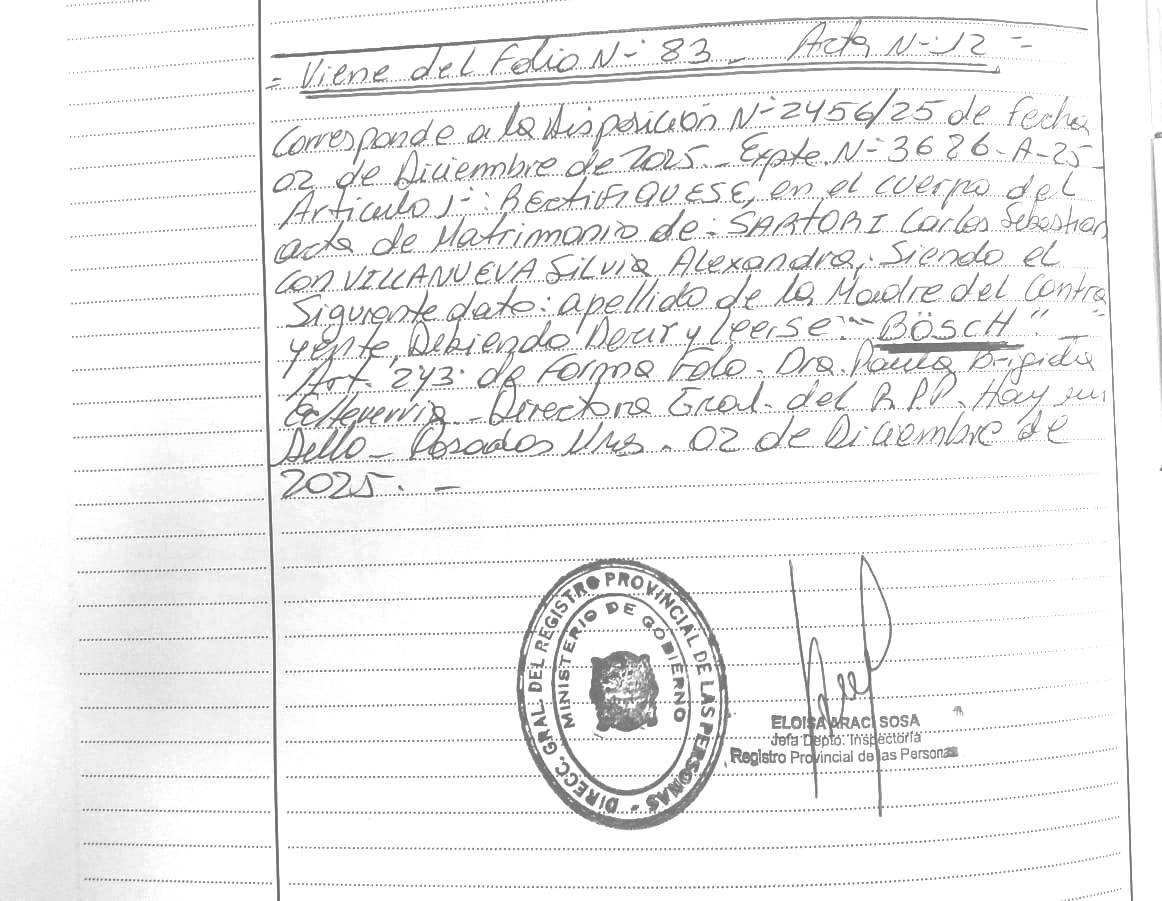 = Viene del Folio N-º 83 _ Acta N-º 12 =
Corresponde a la Disposición N-º 2456/25 de fecha
02 de Diciembre de 2025 _ Expte. N-º 3626-A-25-
Articulo 1-º: RECTIFIQUESE, en el cuerpo del
acta de Matrimonio de: SARTORI Carlos Sebastian
Con VILLANUEVA Silvia Alexandra; Siendo el
Siguiente dato: apellido de la Madre del Contra
yente, Debiendo Decir y leerse: "BÖSCH"
Art. 2y3: de Forma Fdo. Dra. Paula Brigida
Echeverria _ Directora Gral. del R.P.P. Hay un
Sello _ Posadas Mnes. 02 de Diciembre de
2025. _
DIRECC. GRAL. DEL REGISTRO PROVINCIAL DE LAS PERSONAS -
MINISTERIO DE GOBIERNO
ELOISA ARACI SOSA
Jefa Depto. Inspectoría
Registro Provincial de las Personas